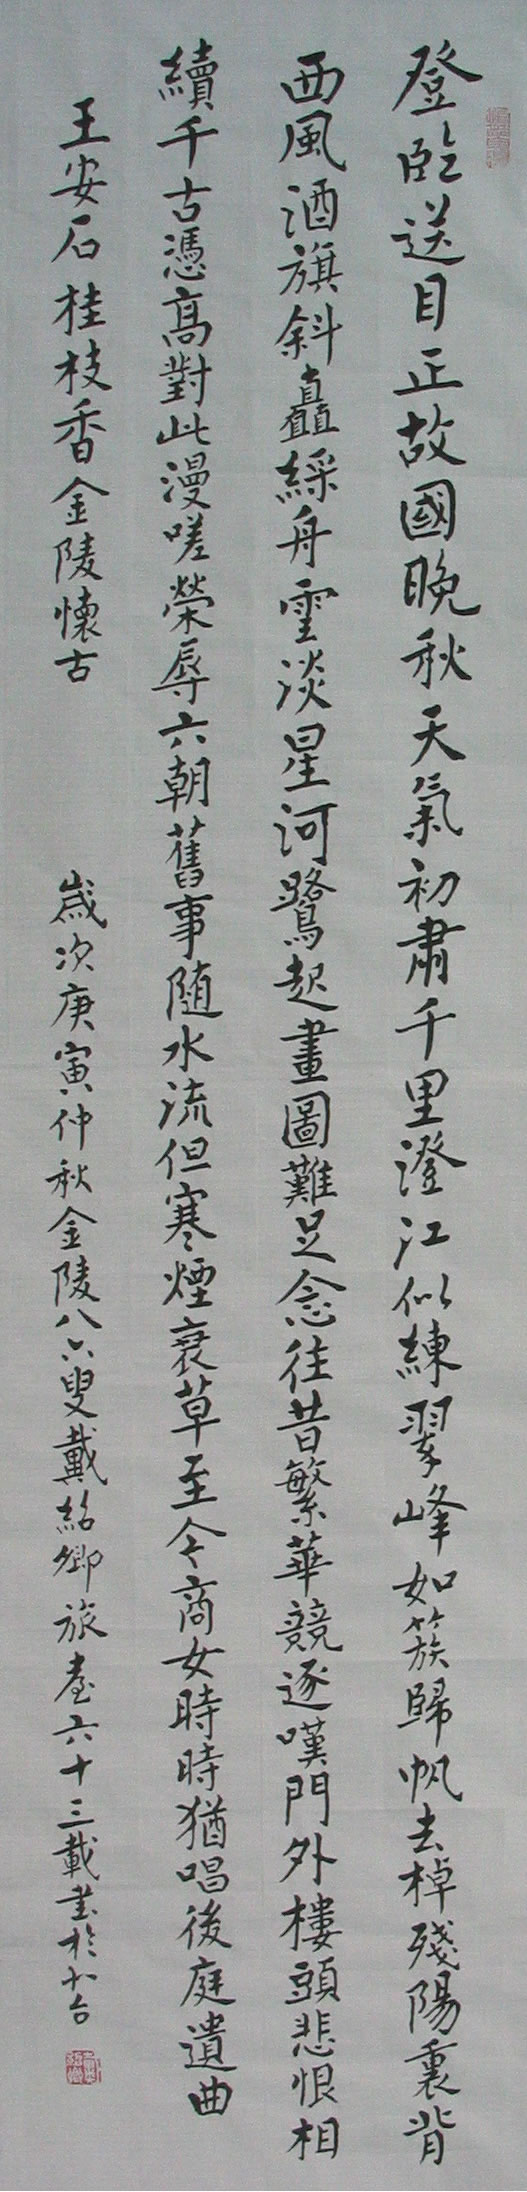 登臨送目正故國晚秋天氣初肅千里澄江似練翠峰如簇歸帆去棹殘陽裏背
西風酒旗斜矗綵舟雲淡星河鷺起畫圖難足念往昔繁華競逐嘆門外樓頭悲恨相
續千古憑高對此漫嗟榮辱六朝舊事隨水流但寒煙衰草至今商女時時猶唱後庭遺曲
王安石桂枝香金陵懷古
歲次庚寅仲秋金陵八六叟戴紹卿旅臺六十三載書於台